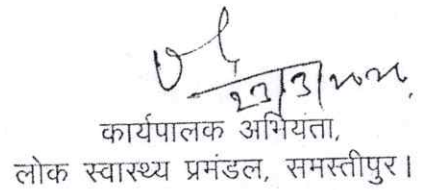 23/3/2022
कार्यपालक अभियंता,
लोक स्वास्थ्य प्रमंडल, समस्तीपुर।